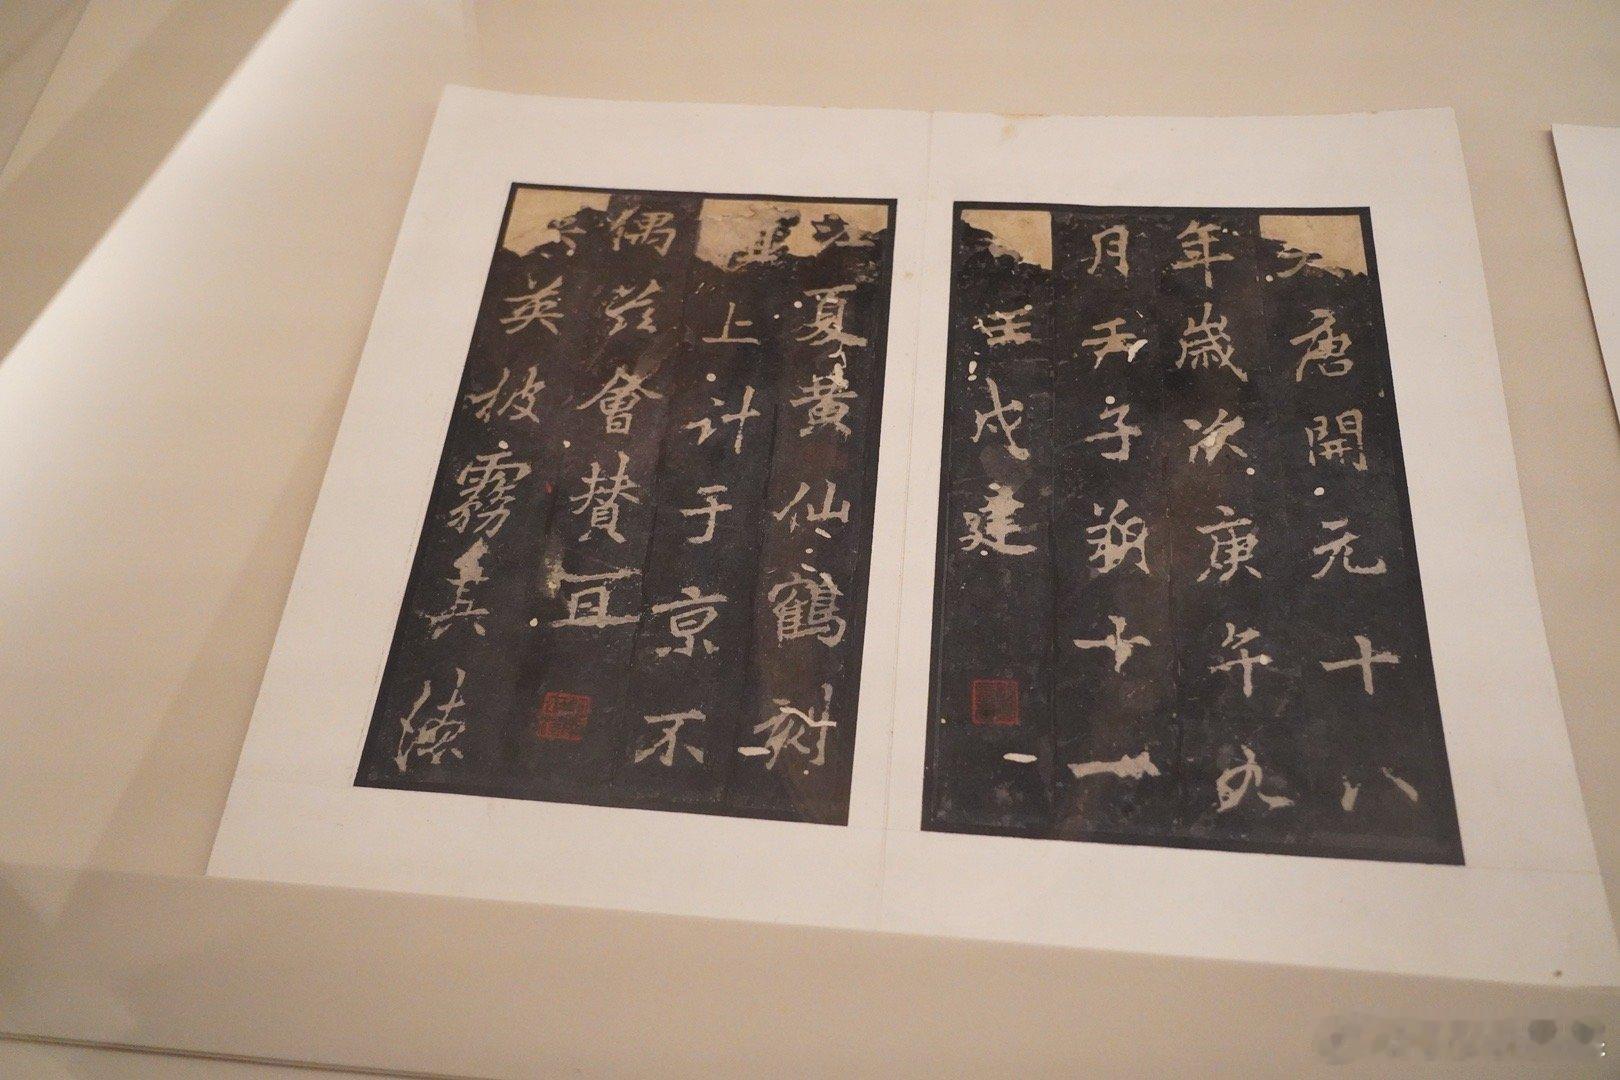 大唐開元十八
年歲次庚午九
月壬子朔十一
壬戌建
江夏黃仙鶴刻
上計于京不
偶茲會贊且
英披霧真德